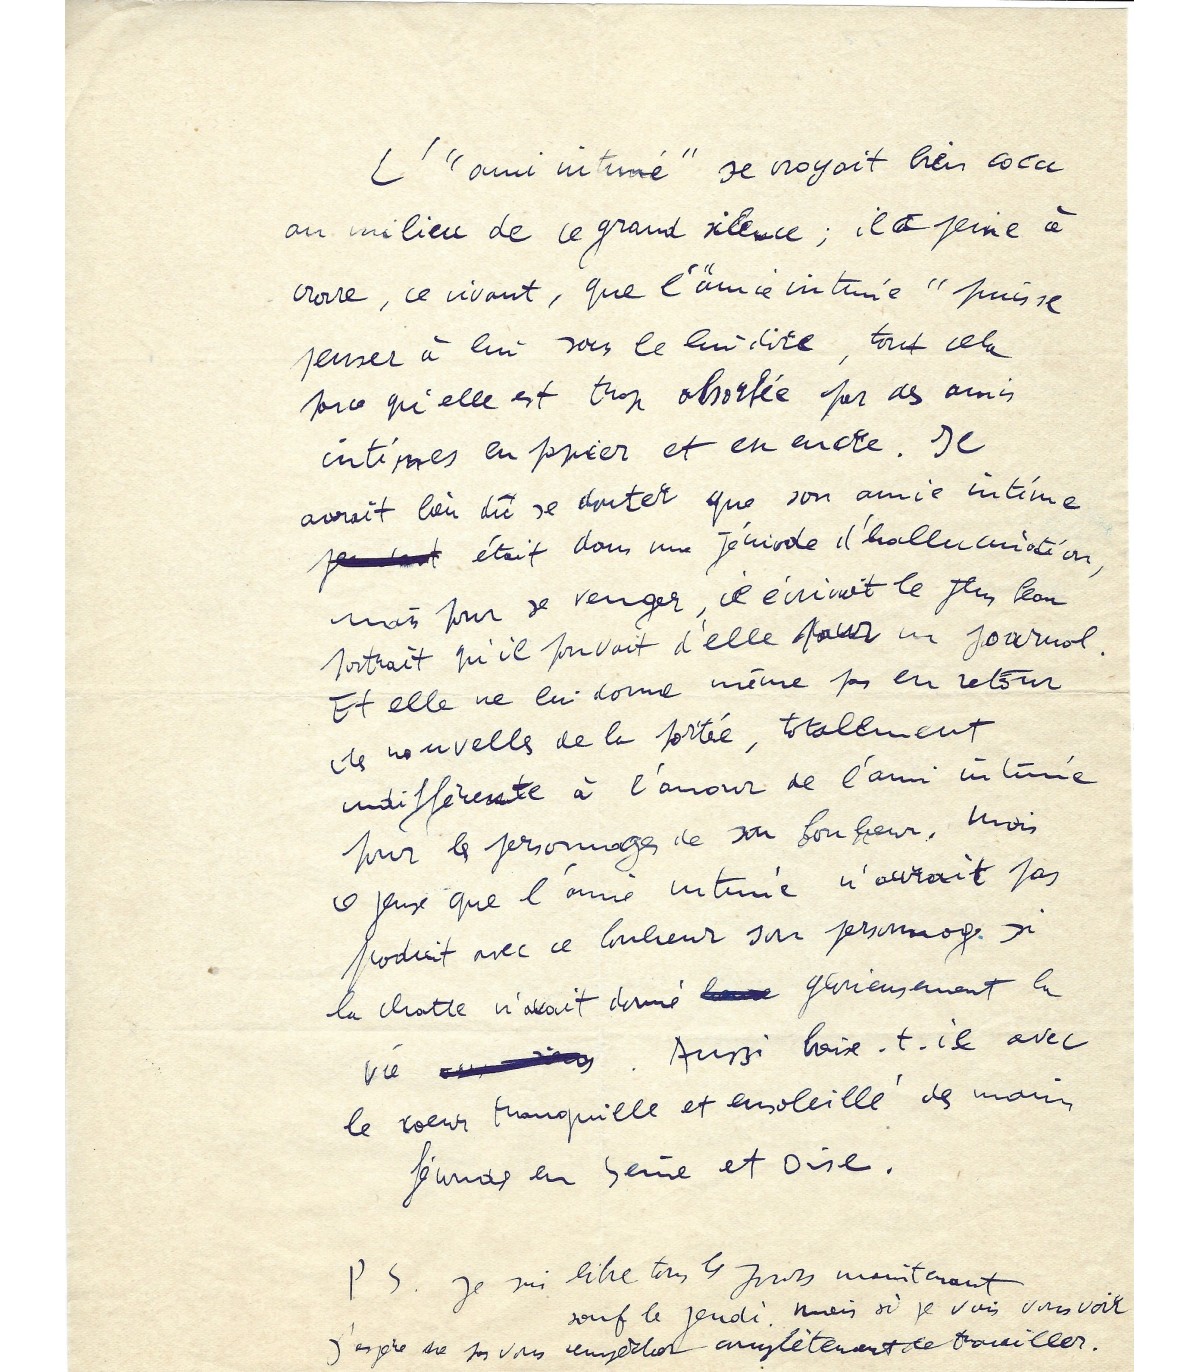 L' "ami intime" se croyait bien cocu
au milieu de ce grand silence ; il a peine à
croire, ce vivant, que l'"amie intime" puisse
penser à lui sans le lui dire, tout cela
parce qu'elle est trop absorbée par des amis
intimes en papier et en encre. Il
aurait bien dû se douter que son amie intime
était dans une période d'hallucination,
mais pour se venger, il écrivait le plus beau
portrait qu'il pouvait d'elle pour un journal.
Et elle ne lui donne même pas en retour
des nouvelles de la portée, totallement
indifférente à l'amour de l'ami intime
pour les personnages de son bonheur. Mais
je pense que l'amie intime n'aurait pas
produit avec ce bonheur son personnage si
la chatte n'avait donné glorieusement la
vie . Aussi baise-t-il avec
le coeur tranquille et ensoleillé des mains
fécondes en Seine et Oise.
P S. Je suis libre tous les jours maintenant
sauf le jeudi. Mais si je vais vous voir
j'espère ne pas vous empêcher complètement de travailler.